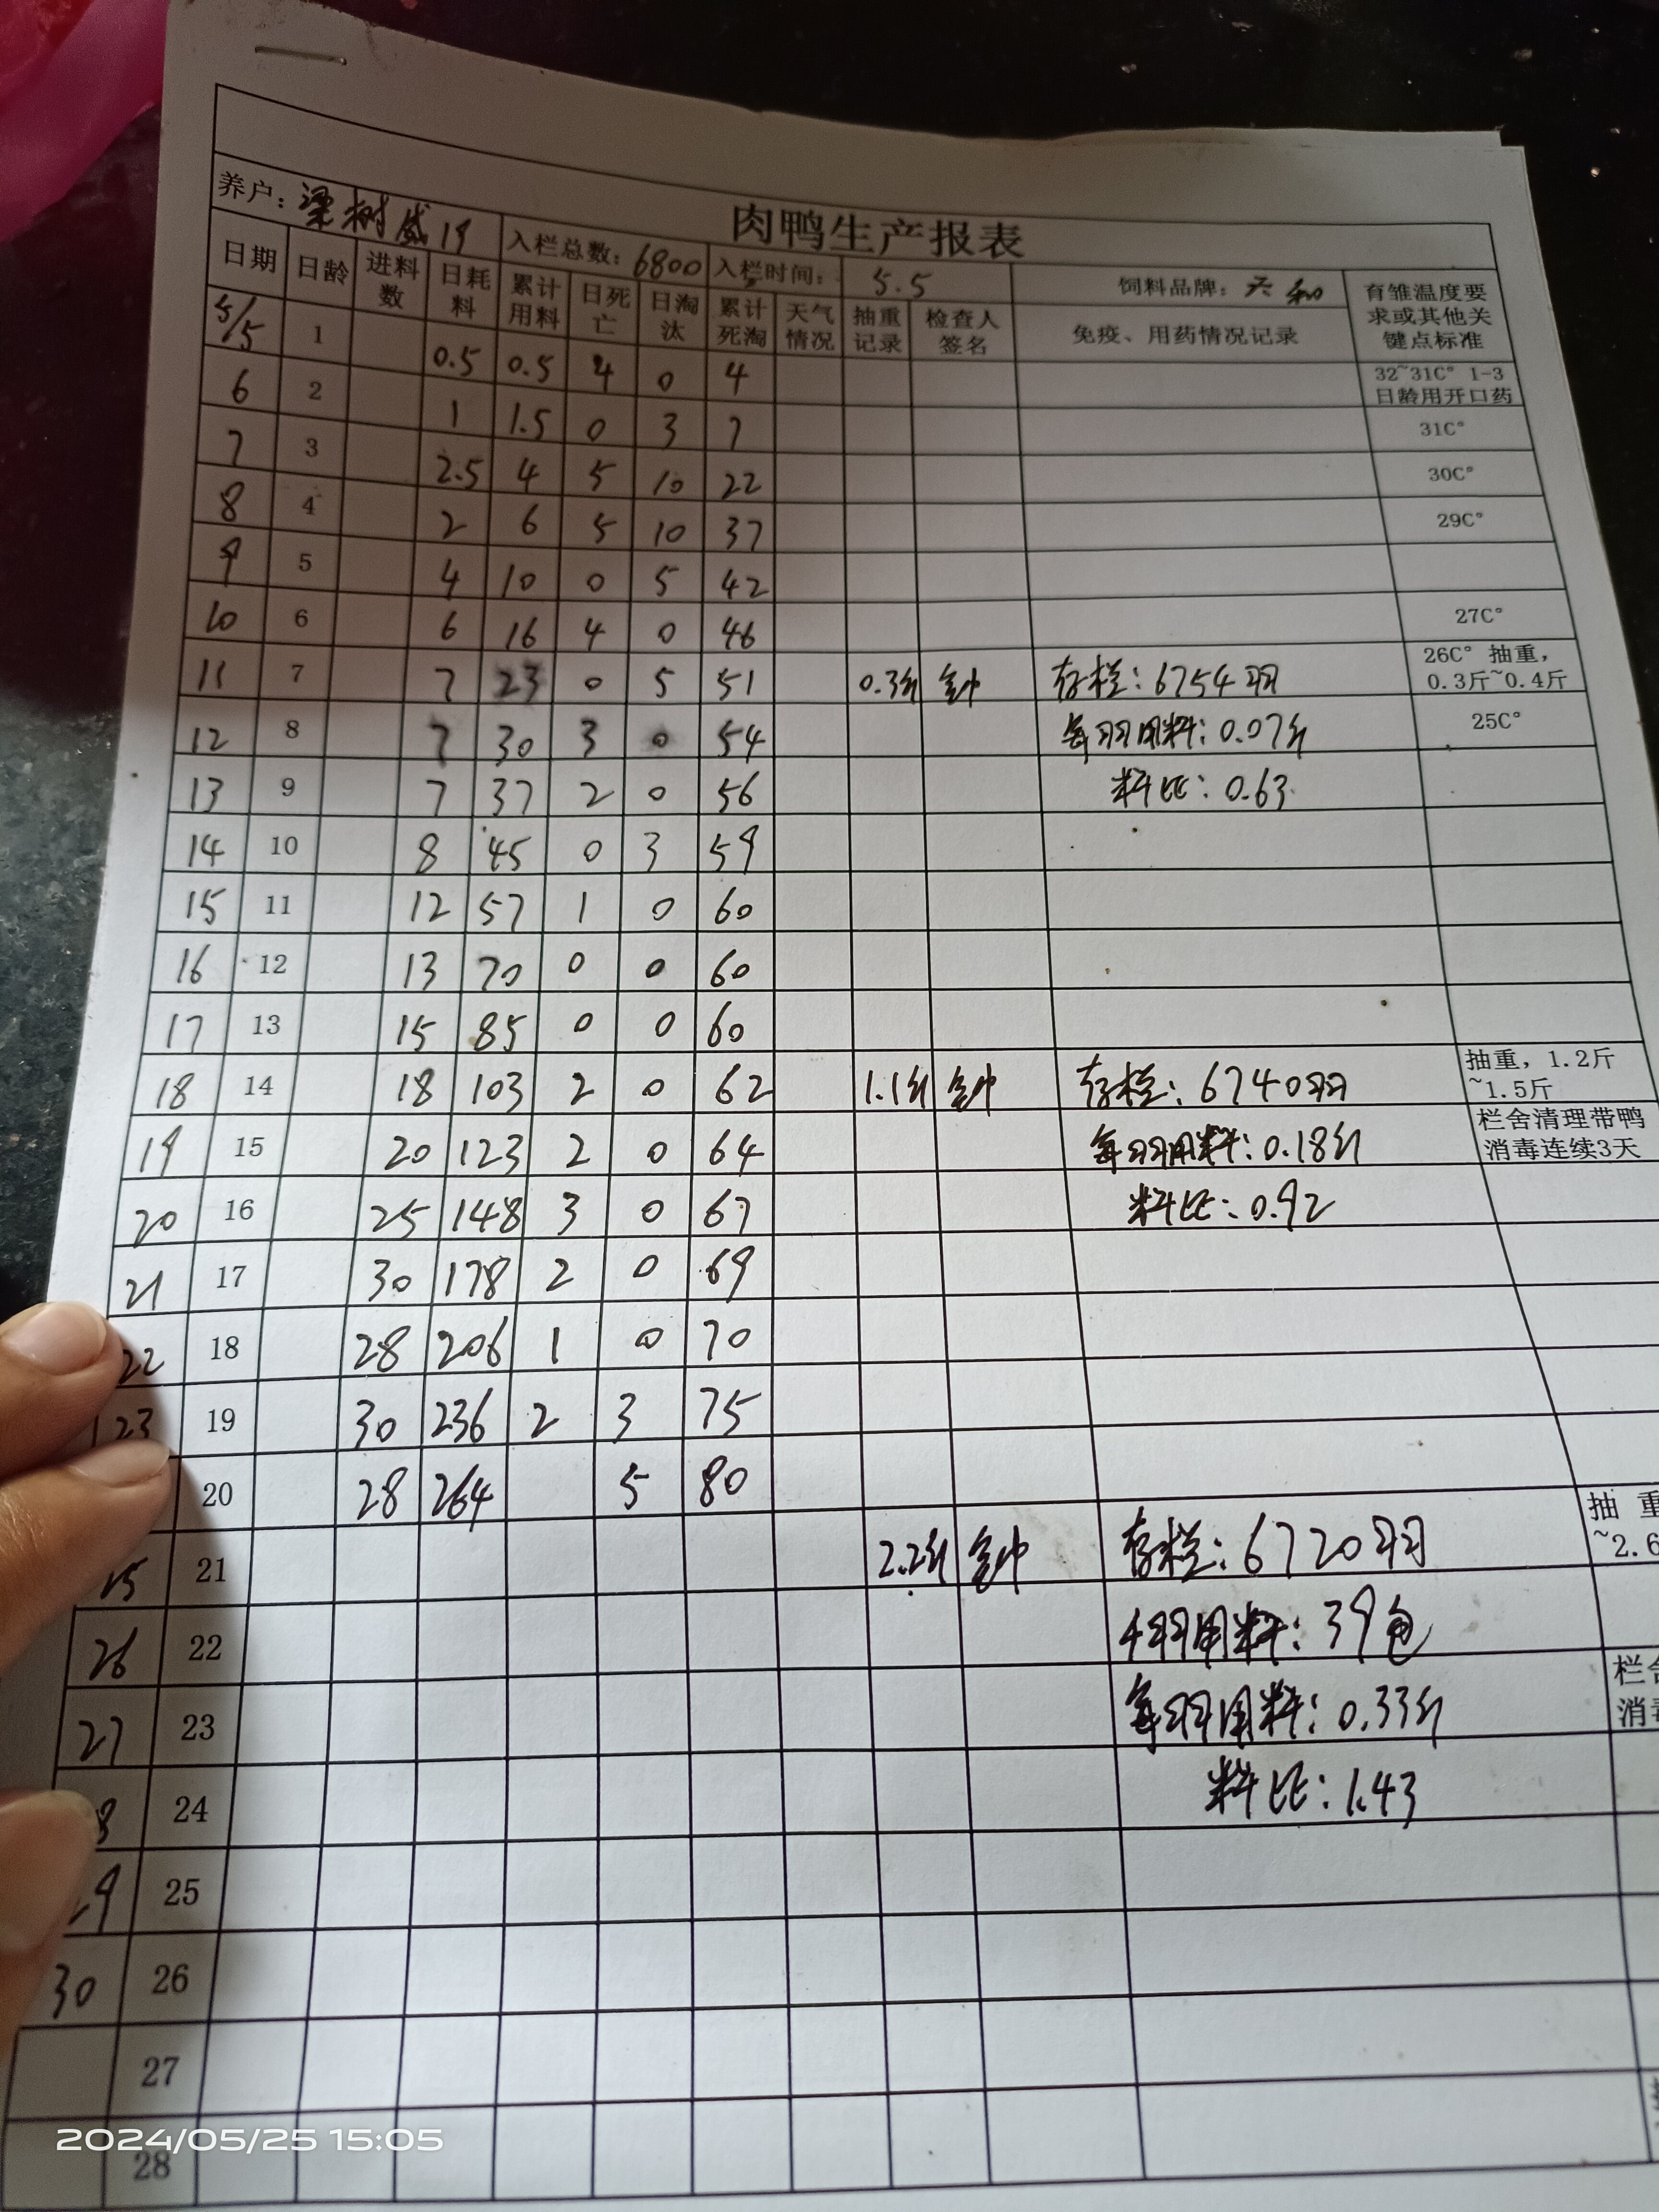 肉鸭生产报表
养户：梁树威19 入栏总数：6800 入栏时间： 5.5 饲料品牌：
日期 日龄 进料数 日耗料 累计用料 日死亡 日淘汰 累计死淘 天气情况 抽重记录 检查人签名 免疫、用药情况记录 育雏温度要求或其他关键点标准
5/5 1 0.5 0.5 4 0 4 32~31C° 1-3日龄用开口药
6 2 1 1.5 0 3 7 31C°
7 3 2.5 4 5 10 22 30C°
8 4 2 6 5 10 37 29C°
9 5 4 10 0 5 42
10 6 6 16 4 0 46 27C°
11 7 7 23 0 5 51 0.3斤 存栏：6754羽 26C° 抽重，0.3斤~0.4斤
12 8 7 30 3 0 54 每羽用料：0.07斤 25C°
13 9 7 37 2 0 56 料比：0.63
14 10 8 45 0 3 59
15 11 12 57 1 0 60
16 12 13 70 0 0 60
17 13 15 85 0 0 60
18 14 18 103 2 0 62 1.1斤 存栏：6740羽 抽重，1.2斤~1.5斤
19 15 20 123 2 0 64 每羽用料：0.18斤 栏舍清理带鸭消毒连续3天
20 16 25 148 3 0 67 料比：0.92
21 17 30 178 2 0 69
22 18 28 206 1 0 70
23 19 30 236 2 3 75
20 28 264 5 80
21 2.2斤 存栏：6720羽 抽重 ~2.6
26 22 用料：39包
27 23 每羽用料：0.33斤 栏舍 消毒
24 料比：1.43
25
30 26
27
28
2024/05/25 15:05